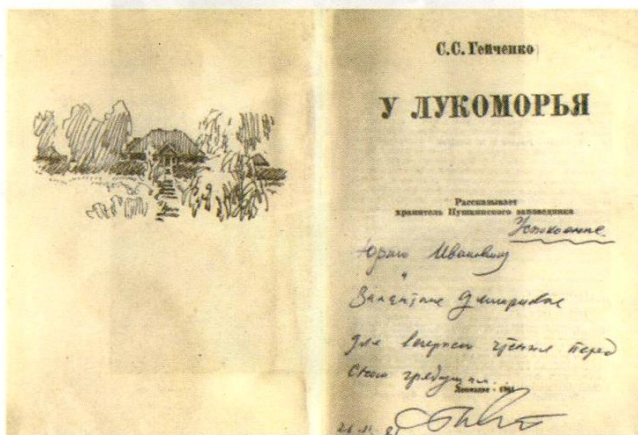 С.С. Гейченко
У ЛУКОМОРЬЯ
Рассказывает
хранитель Пушкинского заповедника
Юрию Ивановичу
и
Валентине Дмитриевне
для вечернего чтения перед
сном грядущим...
Лениздат · 1981